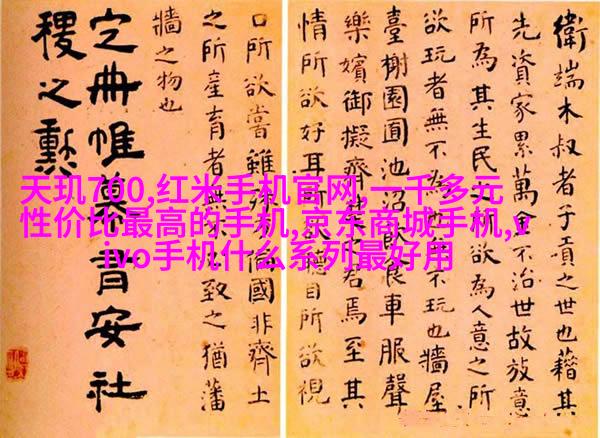 天玑700,红米手机官网,一千多元
性价比最高的手机,京东商城手机,v
ivo手机什么系列最好用
衛端木叔者子貢之世也藉其
先資家累萬金不治世故放意
所為其生民之所欲為人意之所
欲玩者無不為也無不玩也牆屋
臺榭園囿池沼飲食車服聲
樂嬪御擬齊楚之君焉至其
情所欲好耳所欲聽目所欲視
口所欲嘗雖殊方偏國非齊土
之所產育者無不必致之猶藩
牆之物也
定冊帷幕有安社
稷之勲